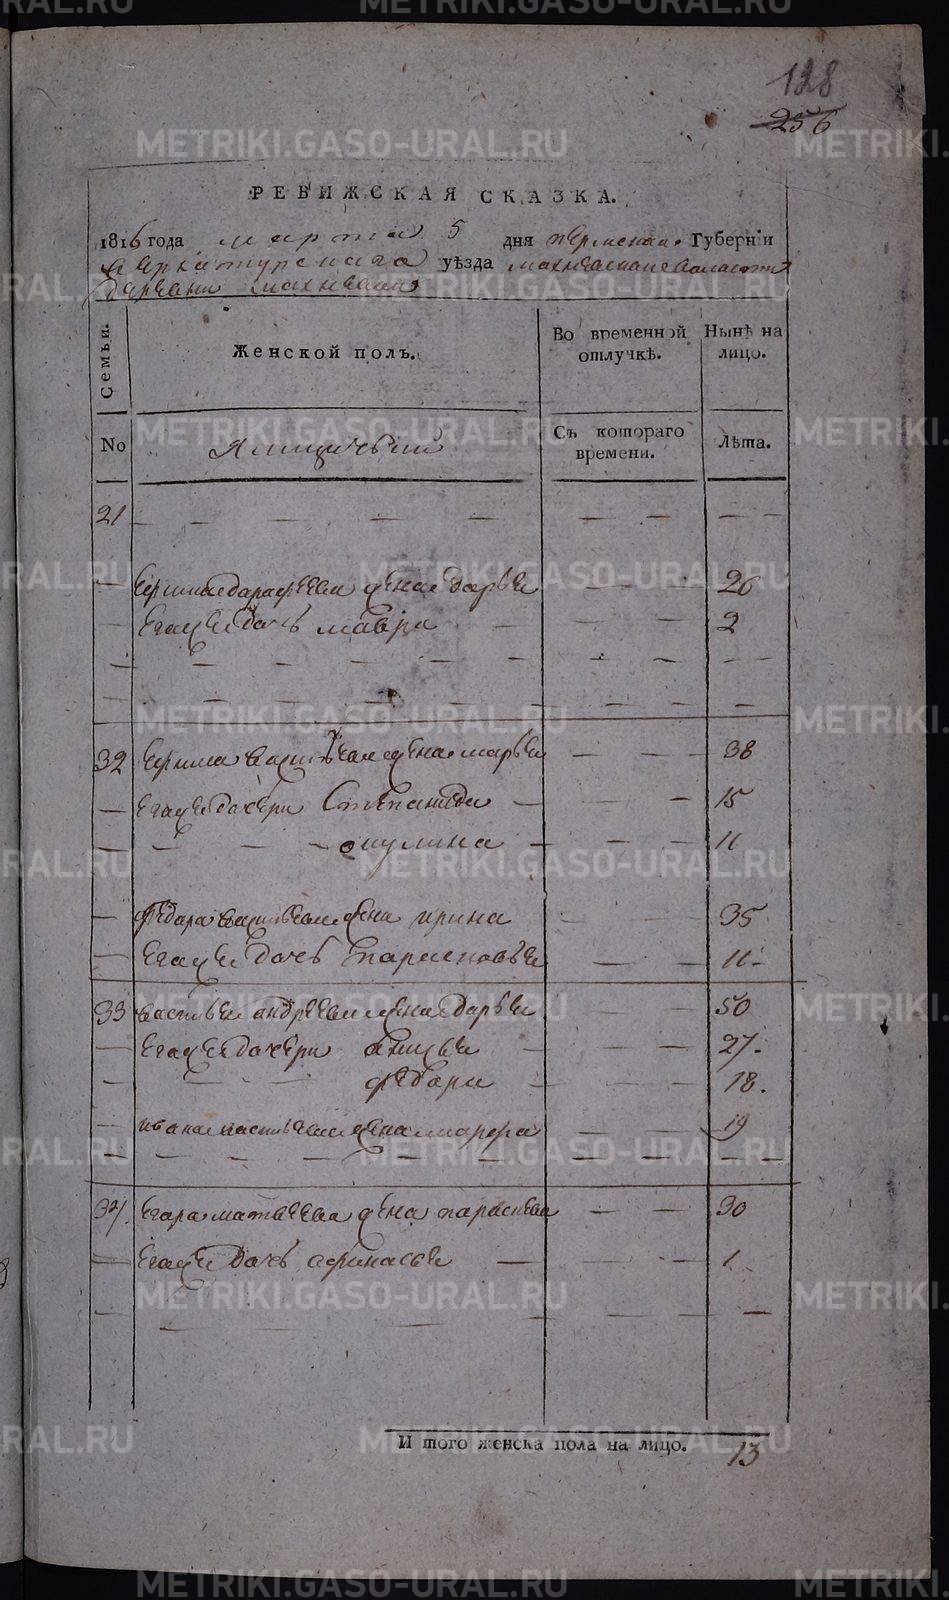 128
256
РЕВИЖСКАЯ СКАЗКА.
1816 года марта 5 дня Пермской Губернїи
Верхатурскаго уѣзда Махневской волости
Деревни Махневой
Семьи.
Женской полъ.
Во временной отлучкѣ.
Нынѣ на лицо.
No
Ямщичьей
Съ котораго времени.
Лѣта.
21
Ефима Дарафеева жена Дарья 26
Егожъ дочь мавра 2
32 Ефима Васильева жена марья 38
Егожъ дочери Степанида 15
окулина 11
Федара Васильева жена ирина 35
Егожъ дочь Парасковья 11
33 Василья андреева жена Дарья 50
Егожъ дочери анисья 27
Федора 18.
ивана Васильева жена марфа 19
34. Егара матвеева жена параскева 30
Егожъ дочь афимья 1
И того женска пола на лицо. 13
METRIKI.GASO-URAL.RU